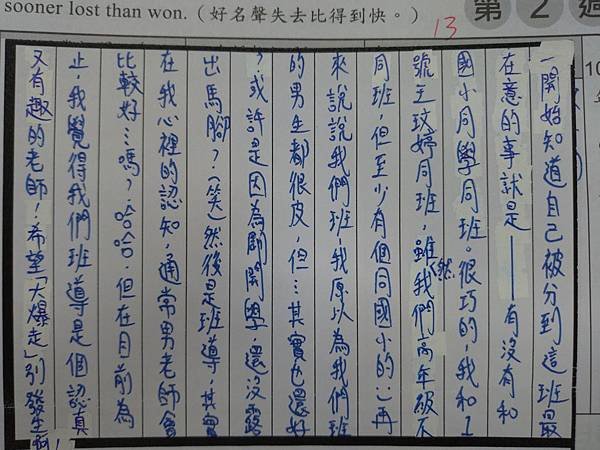 sooner lost than won.（好名聲失去比得到快。）
13
第2週
一開始知道自己被分到這班最
在意的事就是——有沒有和
國小同學同班。很巧的，我和1
號王玟婷同班，雖然我們高年級不
同班，但至少有個同國小的:)再
來說說我們班，我原以為我們班
的男生都很皮，但…其實也還好
，或許是因為剛開學，還沒露
出馬腳？（笑）然後是班導，其實
在我心裡的認知，通常男老師會
比較好…嗎？哈哈。但在目前為
止，我覺得我們班導是個認真
又有趣的老師！希望「大爆走」別發生啊！
10